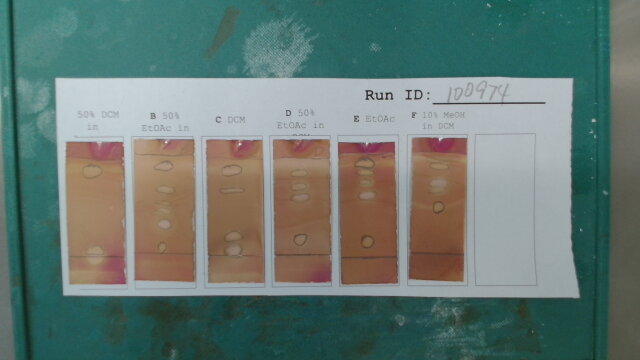 Run ID: 100974
50% DCM
in
B 50%
EtOAc in
C DCM
D 50%
EtOAc in
DCM
E EtOAc
F 10% MeOH
in DCM